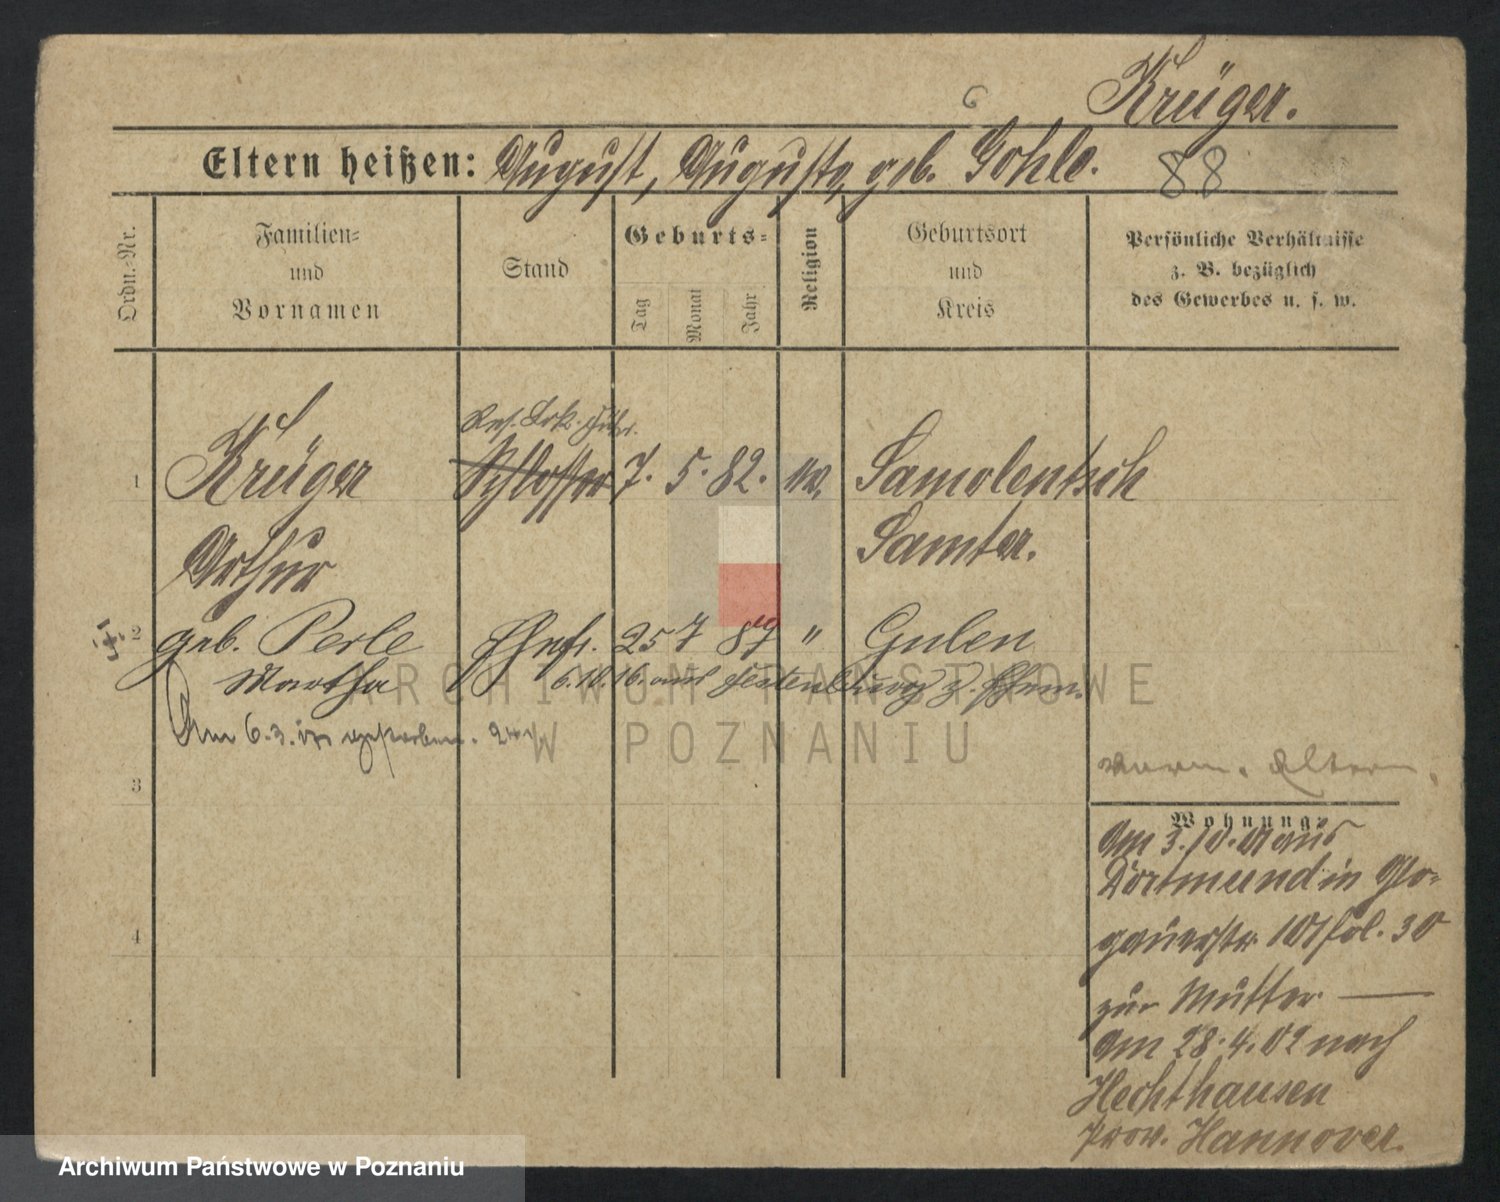 Krüger.
Eltern heißen: August, Auguste, geb. Gohle.
88
Ordn.-Nr.
Familien-
und
Vornamen
Stand
Geburts-
Tag
Monat
Jahr
Religion
Geburtsort
und
Kreis
Persönliche Verhältnisse
z. B. bezüglich
des Gewerbes u. s. w.
1 Krüger Schlosser 7. 5. 82. ev. Samolentsch
Arthur Samter.
2 geb. Perle Ehefr. 25 7 89 " Guben
Martha 6.10.16. aus
Am 6.3. gestorben.
3
verm. Eltern.
Wohnung
Am 3.10.01 aus
Dortmund in Glo-
gauerstr. 101 fol. 30
zur Mutter —
4
Am 28.4.02 nach
Hechthausen
Prov. Hannover.
ARCHIWUM PAŃSTWOWE
W POZNANIU
Archiwum Państwowe w Poznaniu